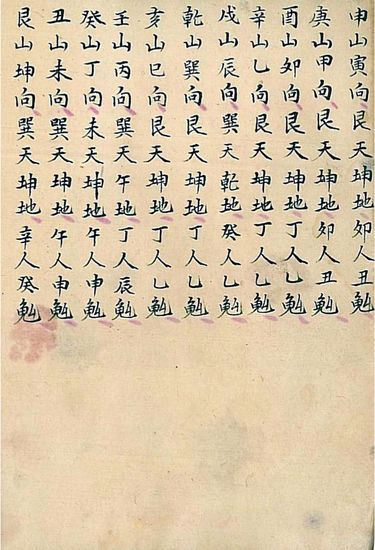 申山寅向艮天坤地夘人丑魁
庚山甲向艮天坤地夘人丑魁
酉山夘向艮天坤地丁人乙魁
辛山乙向艮天坤地丁人乙魁
戌山辰向巽天乾地癸人乙魁
乾山巽向艮天坤地丁人乙魁
亥山巳向艮天坤地丁人乙魁
壬山丙向巽天午地丁人辰魁
癸山丁向未天坤地午人申魁
丑山未向巽天坤地午人申魁
艮山坤向巽天坤地辛人癸魁